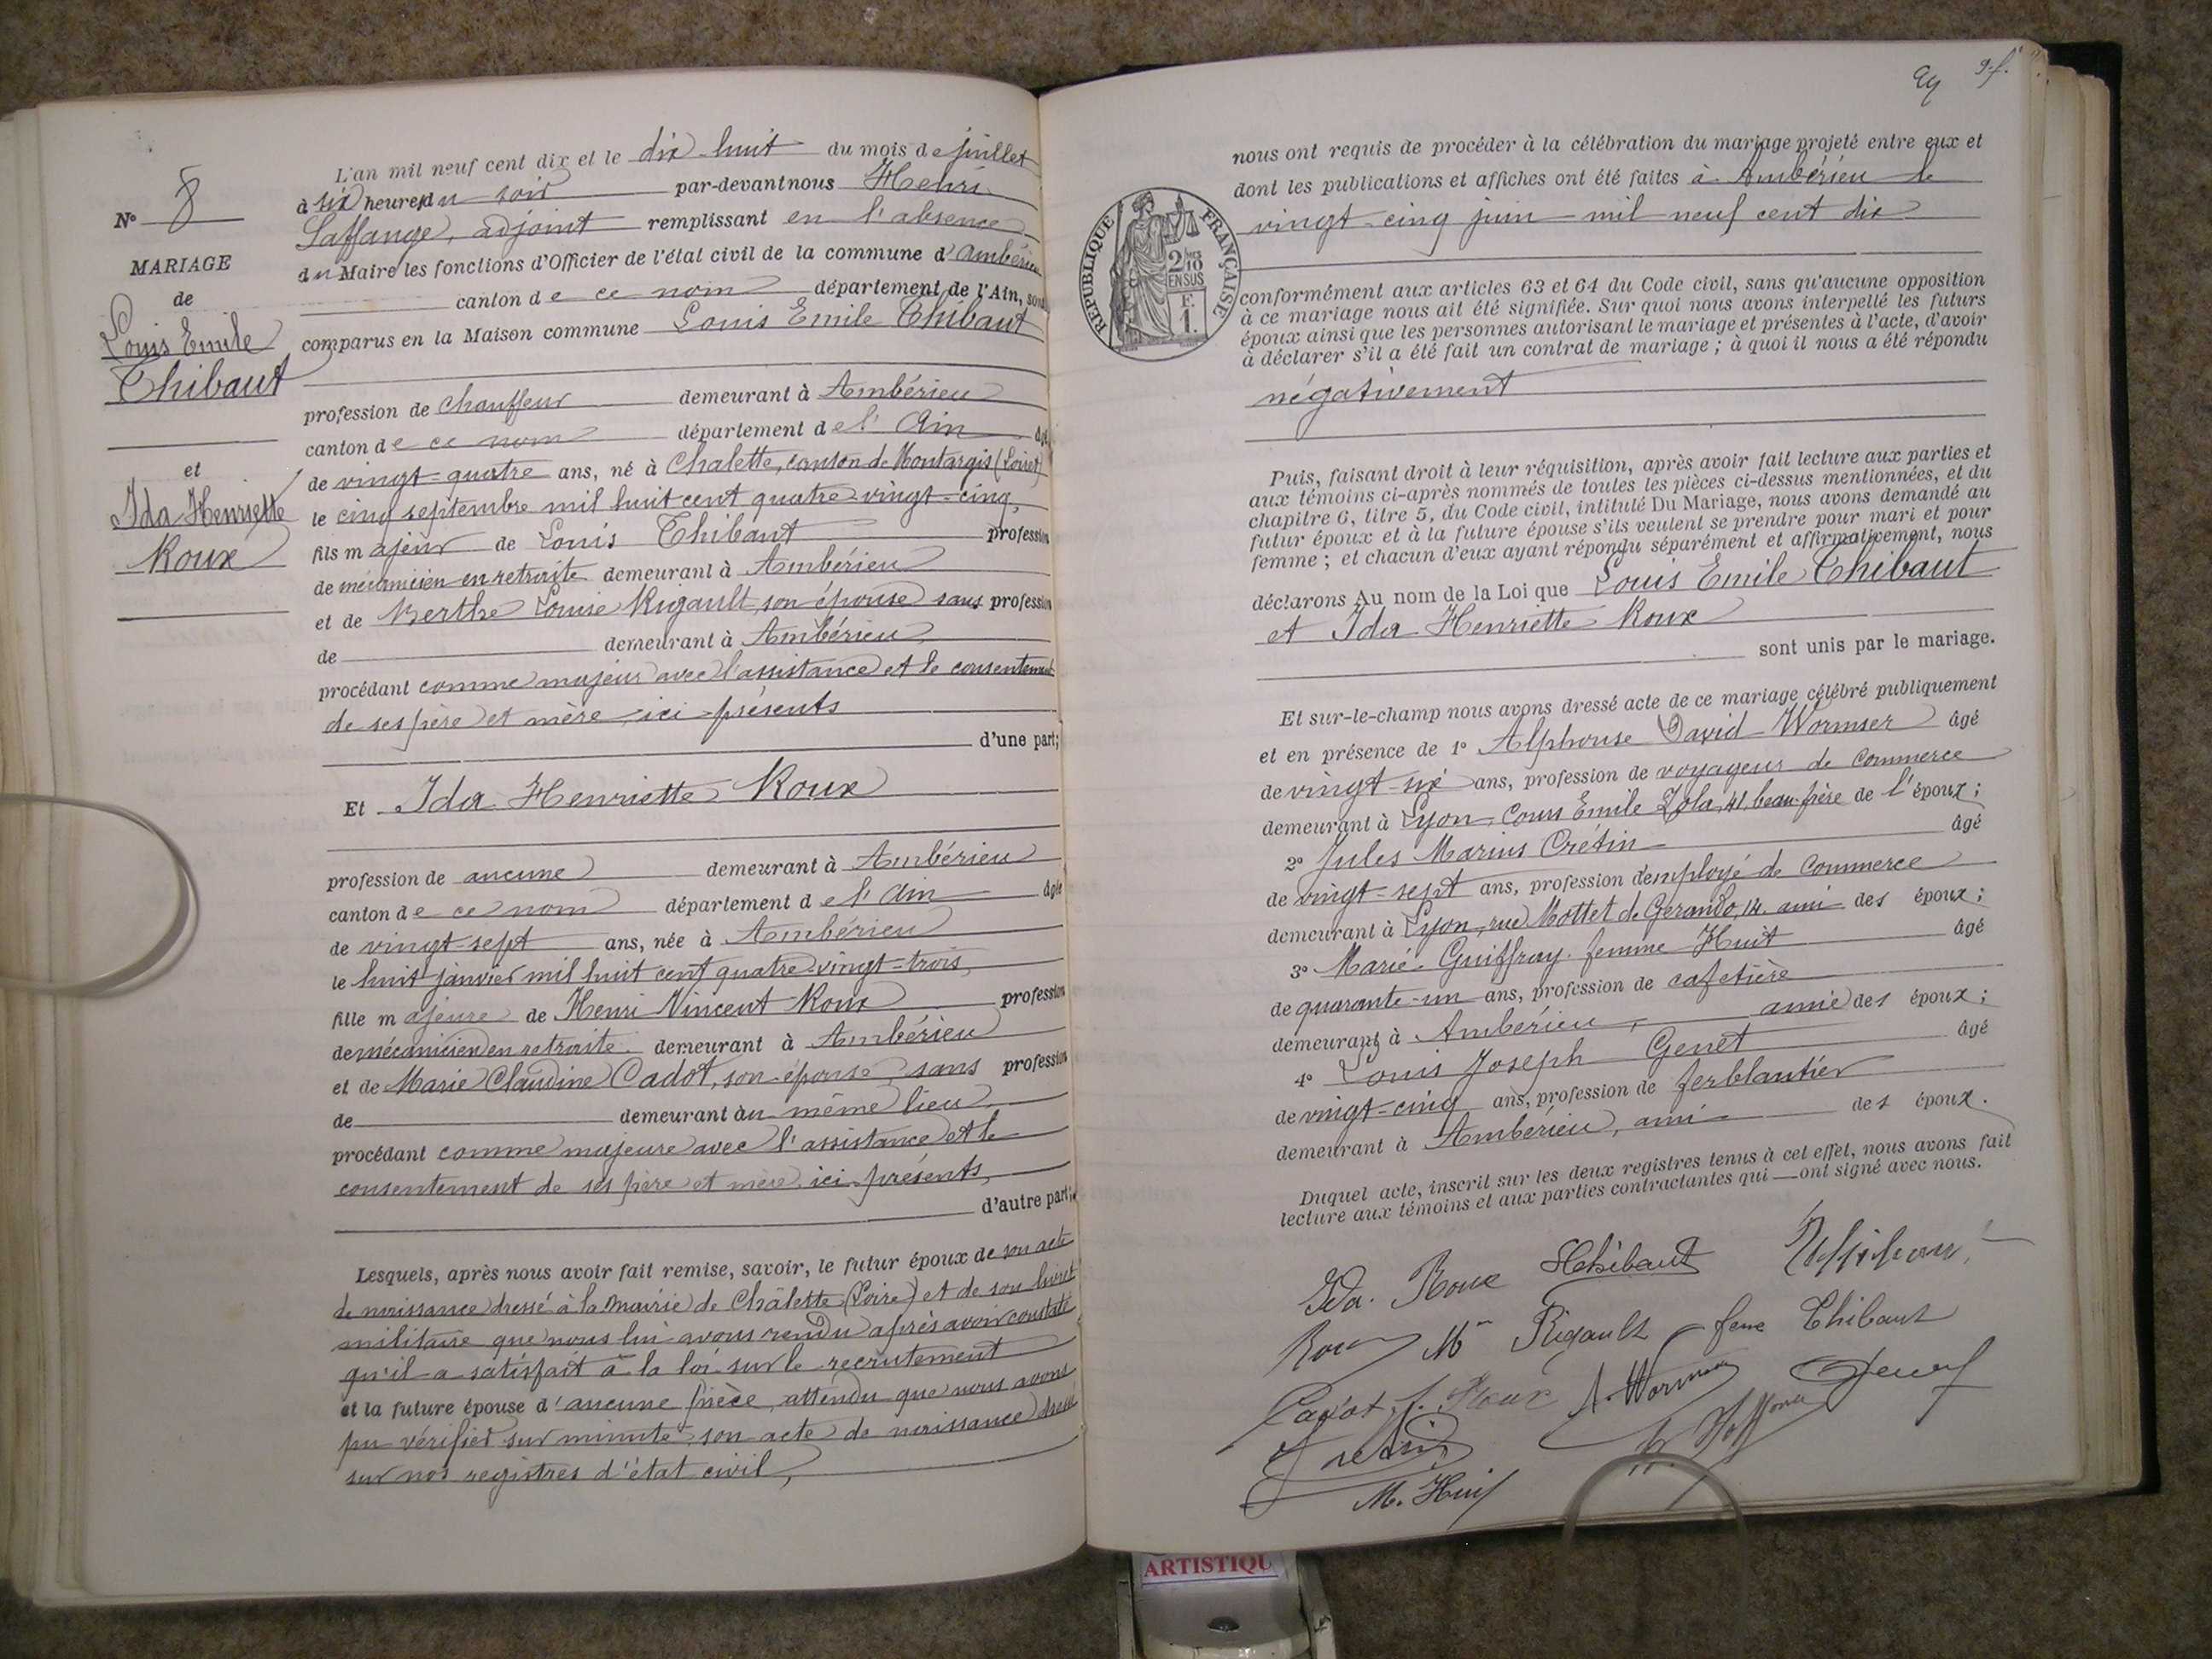 N° 8
MARIAGE
de
Louis Emile
Thibaut
et
Ida Henriette
Roux
L'an mil neuf cent dix et le dix-huit du mois de juillet
à six heures du soir par-devant nous Henri
Laffange, adjoint remplissant en l'absence
du Maire les fonctions d'Officier de l'état civil de la commune d'Ambérieu
canton de ce nom département de l'Ain, sont
comparus en la Maison commune Louis Emile Thibaut
profession de chauffeur demeurant à Ambérieu
canton de ce nom département de l'Ain âgé
de vingt-quatre ans, né à Chalette, canton de Montargis (Loiret)
le cinq septembre mil huit cent quatre vingt-cinq,
fils majeur de Louis Thibaut profession
de mécanicien en retraite demeurant à Ambérieu
et de Berthe Louise Rigault, son épouse sans profession
de demeurant à Ambérieu
procédant comme majeur avec l'assistance et le consentement
de ses père et mère ici présents
d'une part;
Et Ida Henriette Roux
profession de aucune demeurant à Ambérieu
canton de ce nom département de l'Ain âgée
de vingt-sept ans, née à Ambérieu
le huit janvier mil huit cent quatre-vingt-trois,
fille majeure de Henri Vincent Roux profession
de mécanicien en retraite demeurant à Ambérieu
et de Marie Claudine Cadot, son épouse sans profession
de demeurant au même lieu
procédant comme majeure avec l'assistance et le
consentement de ses père et mère, ici présents,
d'autre part;
Lesquels, après nous avoir fait remise, savoir, le futur époux de son acte
de naissance dressé à la mairie de Châlette (Loire) et de son livret
militaire que nous lui avons rendu après avoir constaté
qu'il a satisfait à la loi sur le recrutement
et la future épouse d'aucune pièce, attendu que nous avons
pu vérifier sur minute son acte de naissance dressé
sur nos registres d'état civil,
9.f.
nous ont requis de procéder à la célébration du mariage projeté entre eux et
dont les publications et affiches ont été faites à Ambérieu le
vingt-cinq juin mil neuf cent dix
RÉPUBLIQUE FRANÇAISE
2/10
EN SUS
F.
1.
conformément aux articles 63 et 64 du Code civil, sans qu'aucune opposition
à ce mariage nous ait été signifiée. Sur quoi nous avons interpellé les futurs
époux ainsi que les personnes autorisant le mariage et présentes à l'acte, d'avoir
à déclarer s'il a été fait un contrat de mariage; à quoi il nous a été répondu
négativement
Puis, faisant droit à leur réquisition, après avoir fait lecture aux parties et
aux témoins ci-après nommés de toutes les pièces ci-dessus mentionnées, et du
chapitre 6, titre 5, du Code civil, intitulé Du Mariage, nous avons demandé au
futur époux et à la future épouse s'ils veulent se prendre pour mari et pour
femme; et chacun d'eux ayant répondu séparément et affirmativement, nous
déclarons Au nom de la Loi que Louis Emile Thibaut
et Ida Henriette Roux
sont unis par le mariage.
Et sur-le-champ nous avons dressé acte de ce mariage célébré publiquement
et en présence de 1° Alphonse David Wormser âgé
de vingt-six ans, profession de voyageur de commerce
demeurant à Lyon, Cours Emile Zola, 41, beau-frère de l'époux;
2° Jules Marius Crétin âgé
de vingt-sept ans, profession d'employé de commerce
demeurant à Lyon, rue Mottet de Gerando, 14. ami des époux;
3° Marie Guiffray femme Huit âgé
de quarante-un ans, profession de cafetière
demeurant à Ambérieu, amie des époux;
4° Louis Joseph Genet âgé
de vingt-cinq ans, profession de ferblantier
demeurant à Ambérieu, ami des époux.
Duquel acte, inscrit sur les deux registres tenus à cet effet, nous avons fait
lecture aux témoins et aux parties contractantes qui ont signé avec nous.
Ida. Roux Thibaut
Roux Rigault fme Thibaut
Cadot f. Roux A. Wormser Genet
M. Huit
ARTISTIQU